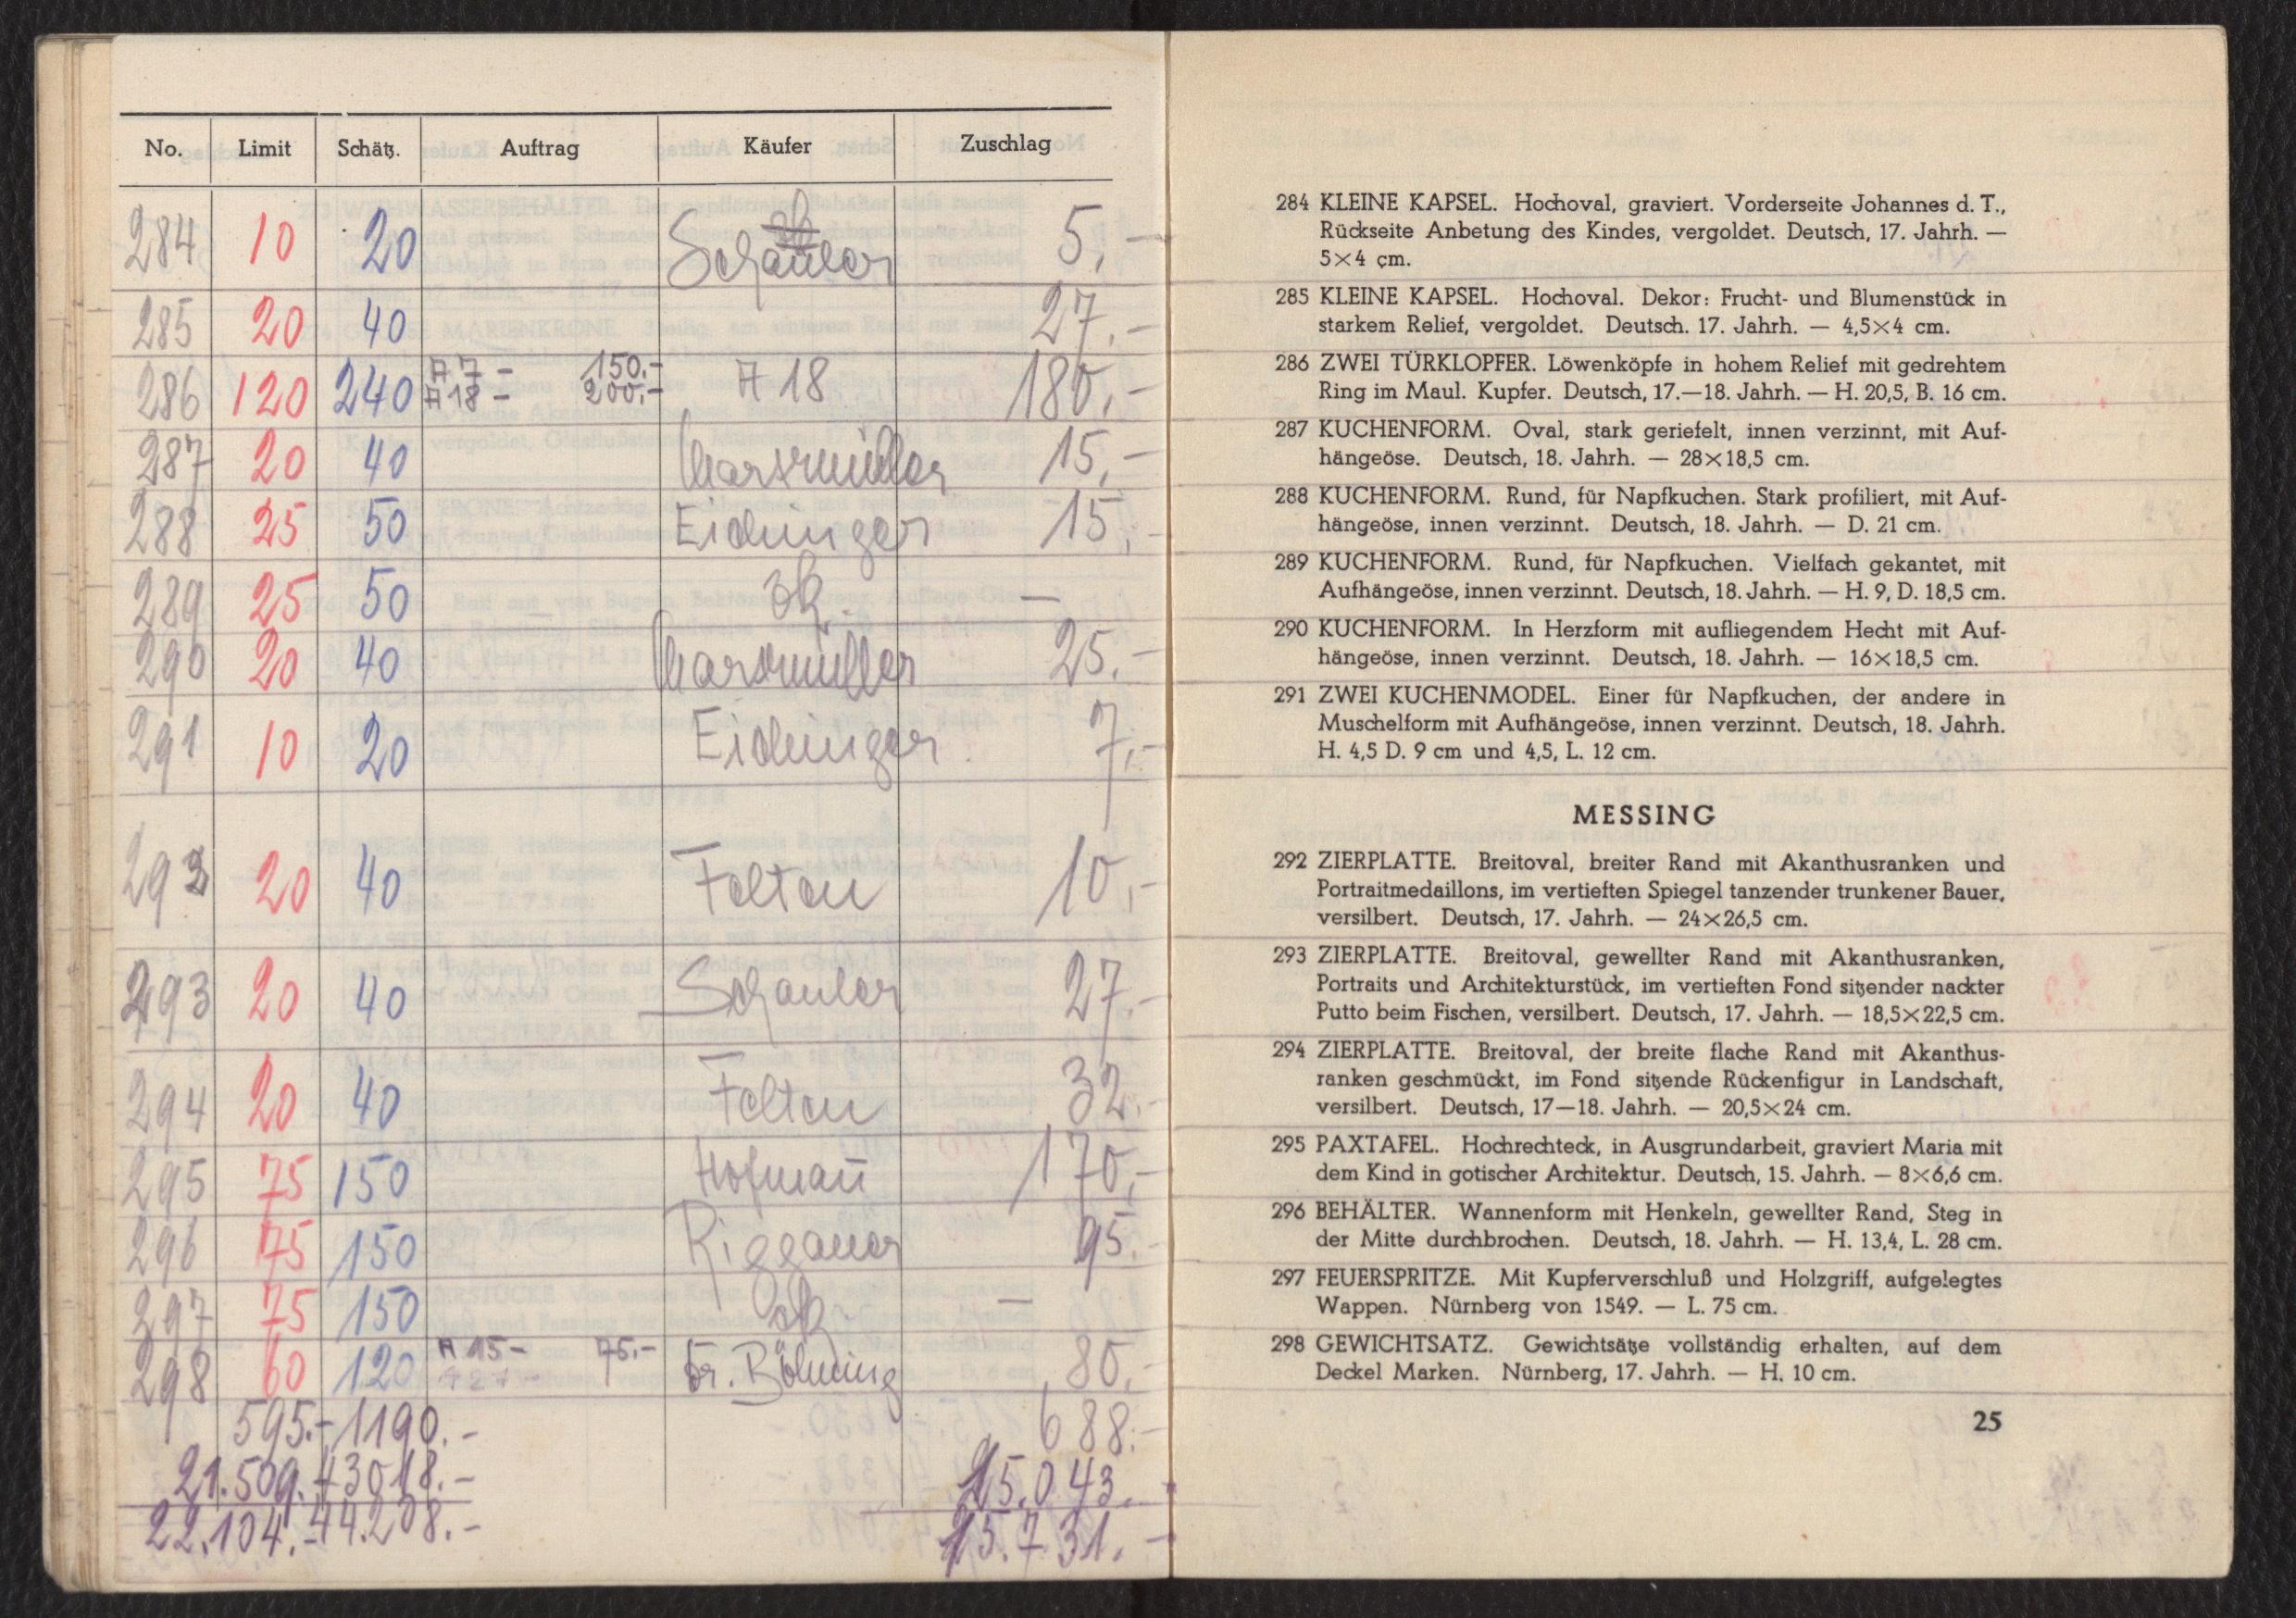 No. Limit Schätz. Auftrag Käufer Zuschlag
284 10 20 Schauler 5,-
285 20 40 27.-
286 120 240 A 7 - 150.- A 18 - 200.- A 18 180,-
287 20 40 15,-
288 25 50 Eichinger 15,-
289 25 50 zk. -
290 20 40 25.-
291 10 20 Eichinger 7,-
292 20 40 Felten 10,-
293 20 40 Schauler 27.-
294 20 40 Felten 32.-
295 75 150 Hofmañ 170,-
296 75 150 Riggauer 95.-
297 75 150 zk -
298 60 120 A 15- 75.- Dr. 80,-
595.- 1190.- 688.-
21.509.- 43018.- 15.043.-
22.104.- 44.208.- 15.731.-
284 KLEINE KAPSEL. Hochoval, graviert. Vorderseite Johannes d. T.,
Rückseite Anbetung des Kindes, vergoldet. Deutsch, 17. Jahrh. —
5×4 cm.
285 KLEINE KAPSEL. Hochoval. Dekor: Frucht- und Blumenstück in
starkem Relief, vergoldet. Deutsch. 17. Jahrh. — 4,5×4 cm.
286 ZWEI TÜRKLOPFER. Löwenköpfe in hohem Relief mit gedrehtem
Ring im Maul. Kupfer. Deutsch, 17.—18. Jahrh. — H. 20,5, B. 16 cm.
287 KUCHENFORM. Oval, stark geriefelt, innen verzinnt, mit Auf-
hängeöse. Deutsch, 18. Jahrh. — 28×18,5 cm.
288 KUCHENFORM. Rund, für Napfkuchen. Stark profiliert, mit Auf-
hängeöse, innen verzinnt. Deutsch, 18. Jahrh. — D. 21 cm.
289 KUCHENFORM. Rund, für Napfkuchen. Vielfach gekantet, mit
Aufhängeöse, innen verzinnt. Deutsch, 18. Jahrh. — H. 9, D. 18,5 cm.
290 KUCHENFORM. In Herzform mit aufliegendem Hecht mit Auf-
hängeöse, innen verzinnt. Deutsch, 18. Jahrh. — 16×18,5 cm.
291 ZWEI KUCHENMODEL. Einer für Napfkuchen, der andere in
Muschelform mit Aufhängeöse, innen verzinnt. Deutsch, 18. Jahrh.
H. 4,5 D. 9 cm und 4,5, L. 12 cm.
MESSING
292 ZIERPLATTE. Breitoval, breiter Rand mit Akanthusranken und
Portraitmedaillons, im vertieften Spiegel tanzender trunkener Bauer,
versilbert. Deutsch, 17. Jahrh. — 24×26,5 cm.
293 ZIERPLATTE. Breitoval, gewellter Rand mit Akanthusranken,
Portraits und Architekturstück, im vertieften Fond sitzender nackter
Putto beim Fischen, versilbert. Deutsch, 17. Jahrh. — 18,5×22,5 cm.
294 ZIERPLATTE. Breitoval, der breite flache Rand mit Akanthus-
ranken geschmückt, im Fond sitzende Rückenfigur in Landschaft,
versilbert. Deutsch, 17—18. Jahrh. — 20,5×24 cm.
295 PAXTAFEL. Hochrechteck, in Ausgrundarbeit, graviert Maria mit
dem Kind in gotischer Architektur. Deutsch, 15. Jahrh. — 8×6,6 cm.
296 BEHÄLTER. Wannenform mit Henkeln, gewellter Rand, Steg in
der Mitte durchbrochen. Deutsch, 18. Jahrh. — H. 13,4, L. 28 cm.
297 FEUERSPRITZE. Mit Kupferverschluß und Holzgriff, aufgelegtes
Wappen. Nürnberg von 1549. — L. 75 cm.
298 GEWICHTSATZ. Gewichtsätze vollständig erhalten, auf dem
Deckel Marken. Nürnberg, 17. Jahrh. — H. 10 cm.
25